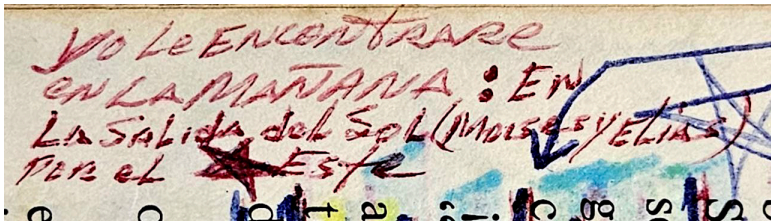 yo Le ENCONTRARE
EN LA MAÑANA : EN
LA SALida del SoL (Moises y ELIAS)
Por el Este